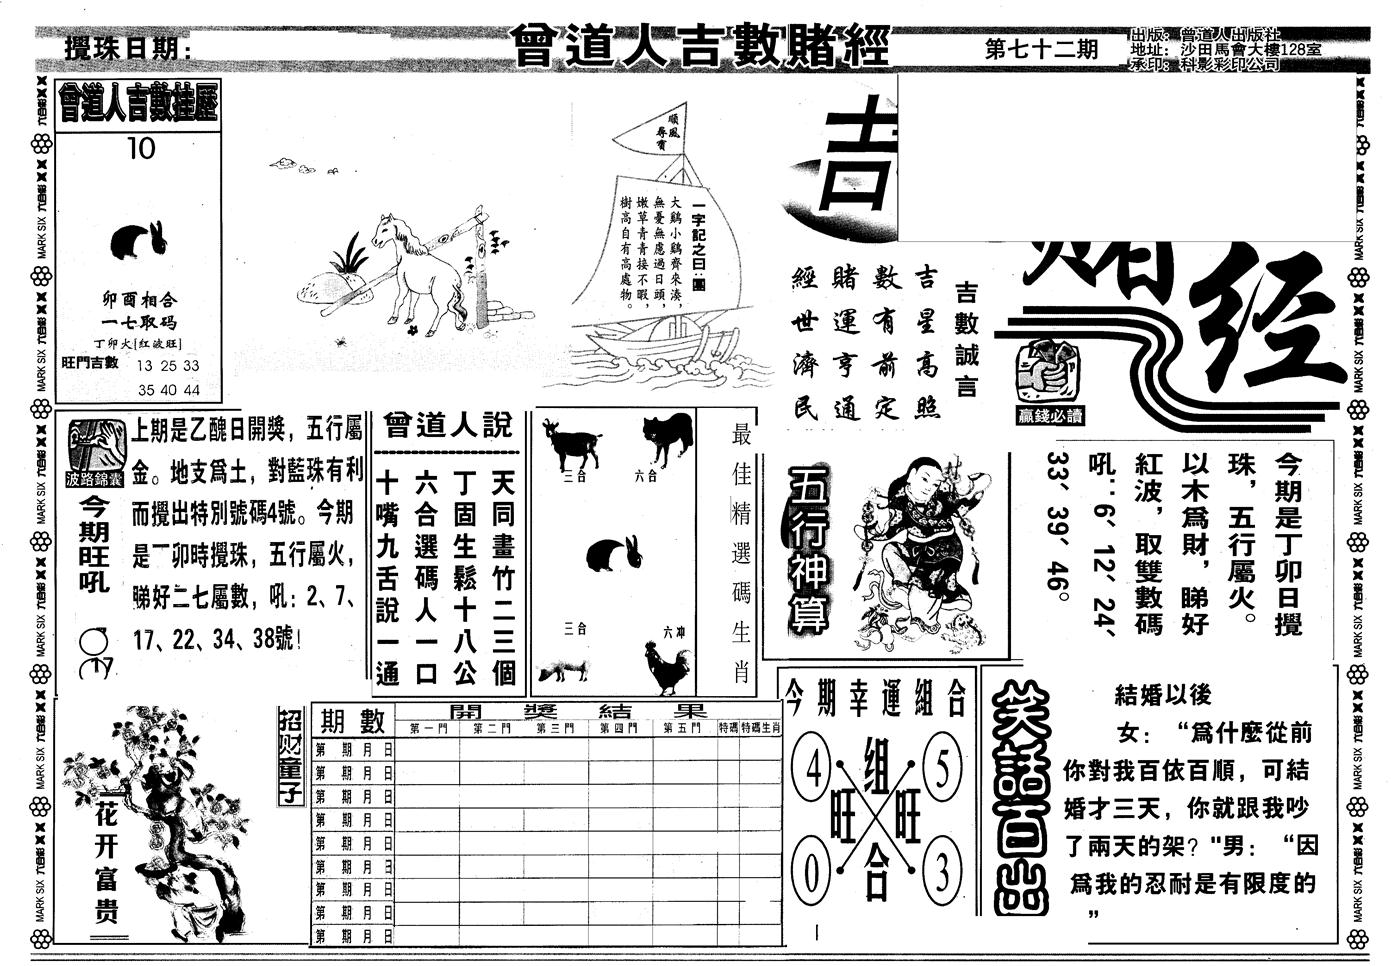 攪珠日期:
曾道人吉數賭經
第七十二期
出版: 曾道人出版社
地址: 沙田馬會大樓128室
承印: 科影彩印公司
曾道人吉數挂歷
10
卯酉相合
一七取码
丁卯火[红波旺]
旺門吉數 13 25 33
35 40 44
順風
尋寶
一字記之曰:團
大鷄小鷄齊來湊,
無憂無慮過日頭,
嫩草青青接不暇,
樹高自有高處物。
吉
賭
经
吉數誠言
吉星高照
數有前定
賭運亨通
經世濟民
贏錢必讀
波路錦囊
今期旺吼
上期是乙醜日開獎，五行屬
金。地支爲土，對藍珠有利
而攪出特別號碼4號。今期
是丁卯時攪珠，五行屬火，
睇好二七屬數，吼: 2、7、
17、22、34、38號!
曾道人說
天同畫竹二三個
丁固生鬆十八公
六合選碼人一口
十嘴九舌說一通
三合
六合
三合
六冲
最佳精選碼生肖
五行神算
今期是丁卯日攪
珠，五行屬火。
以木爲財，睇好
紅波，取雙數碼
吼: 6、12、24、
33、39、46。
花开富贵
招财童子
期數
開獎結果
第一門 第二門 第三門 第四門 第五門 特碼 特碼生肖
第 期 月 日
第 期 月 日
第 期 月 日
第 期 月 日
第 期 月 日
第 期 月 日
第 期 月 日
第 期 月 日
第 期 月 日
今期幸運組合
4 组 5
旺 旺
0 合 3
笑話百出
結婚以後
女: “爲什麼從前
你對我百依百順，可結
婚才三天，你就跟我吵
了兩天的架? "男: “因
爲我的忍耐是有限度的
”
MARK SIX